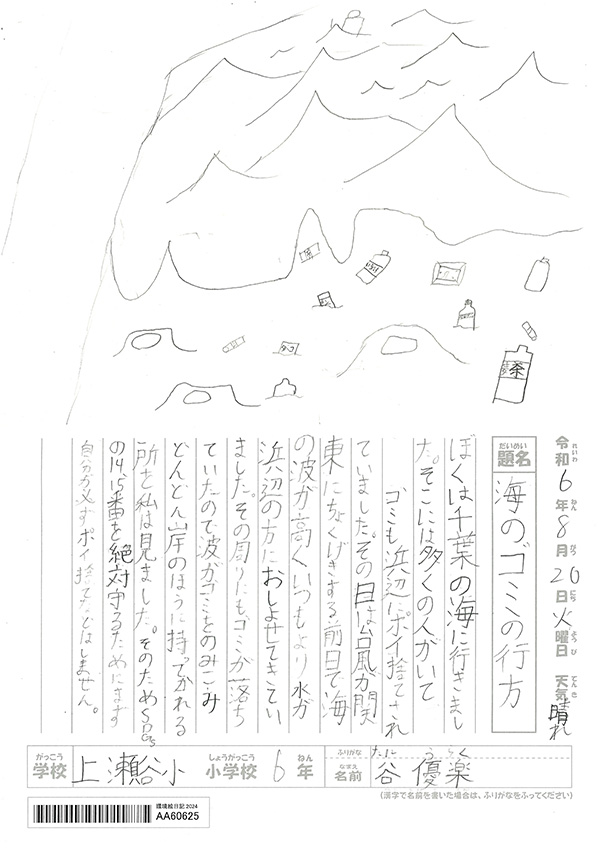 茶
令和6年8月20日火曜日 天気 晴れ
れいわ ねん がつ にち ようび てんき
だいめい
題名 海のゴミの行方
ぼくは千葉の海に行きまし
た。そこには多くの人がいて
ゴミも浜辺にポイ捨てされ
ていました。その日は台風が関
東にちょくげきする前日で海
の波が高くいつもより水が
浜辺の方におしよせてきてい
ました。その周りにも、ゴミが落ち
ていたので波がゴミをのみこみ
どんどん岸のほうに持ってかれる
所を私は見ました。そのためSDGs
の14,15番を絶対守るためにまず
自分が必ずポイ捨てなどはしません。
がっこう しょうがっこう ねん
学校 上瀬谷小 小学校 6年
ふりがな たに うらく
なまえ
名前 谷 優楽
(漢字で名前を書いた場合は、ふりがなをふってください)
環境絵日記2024
AA60625